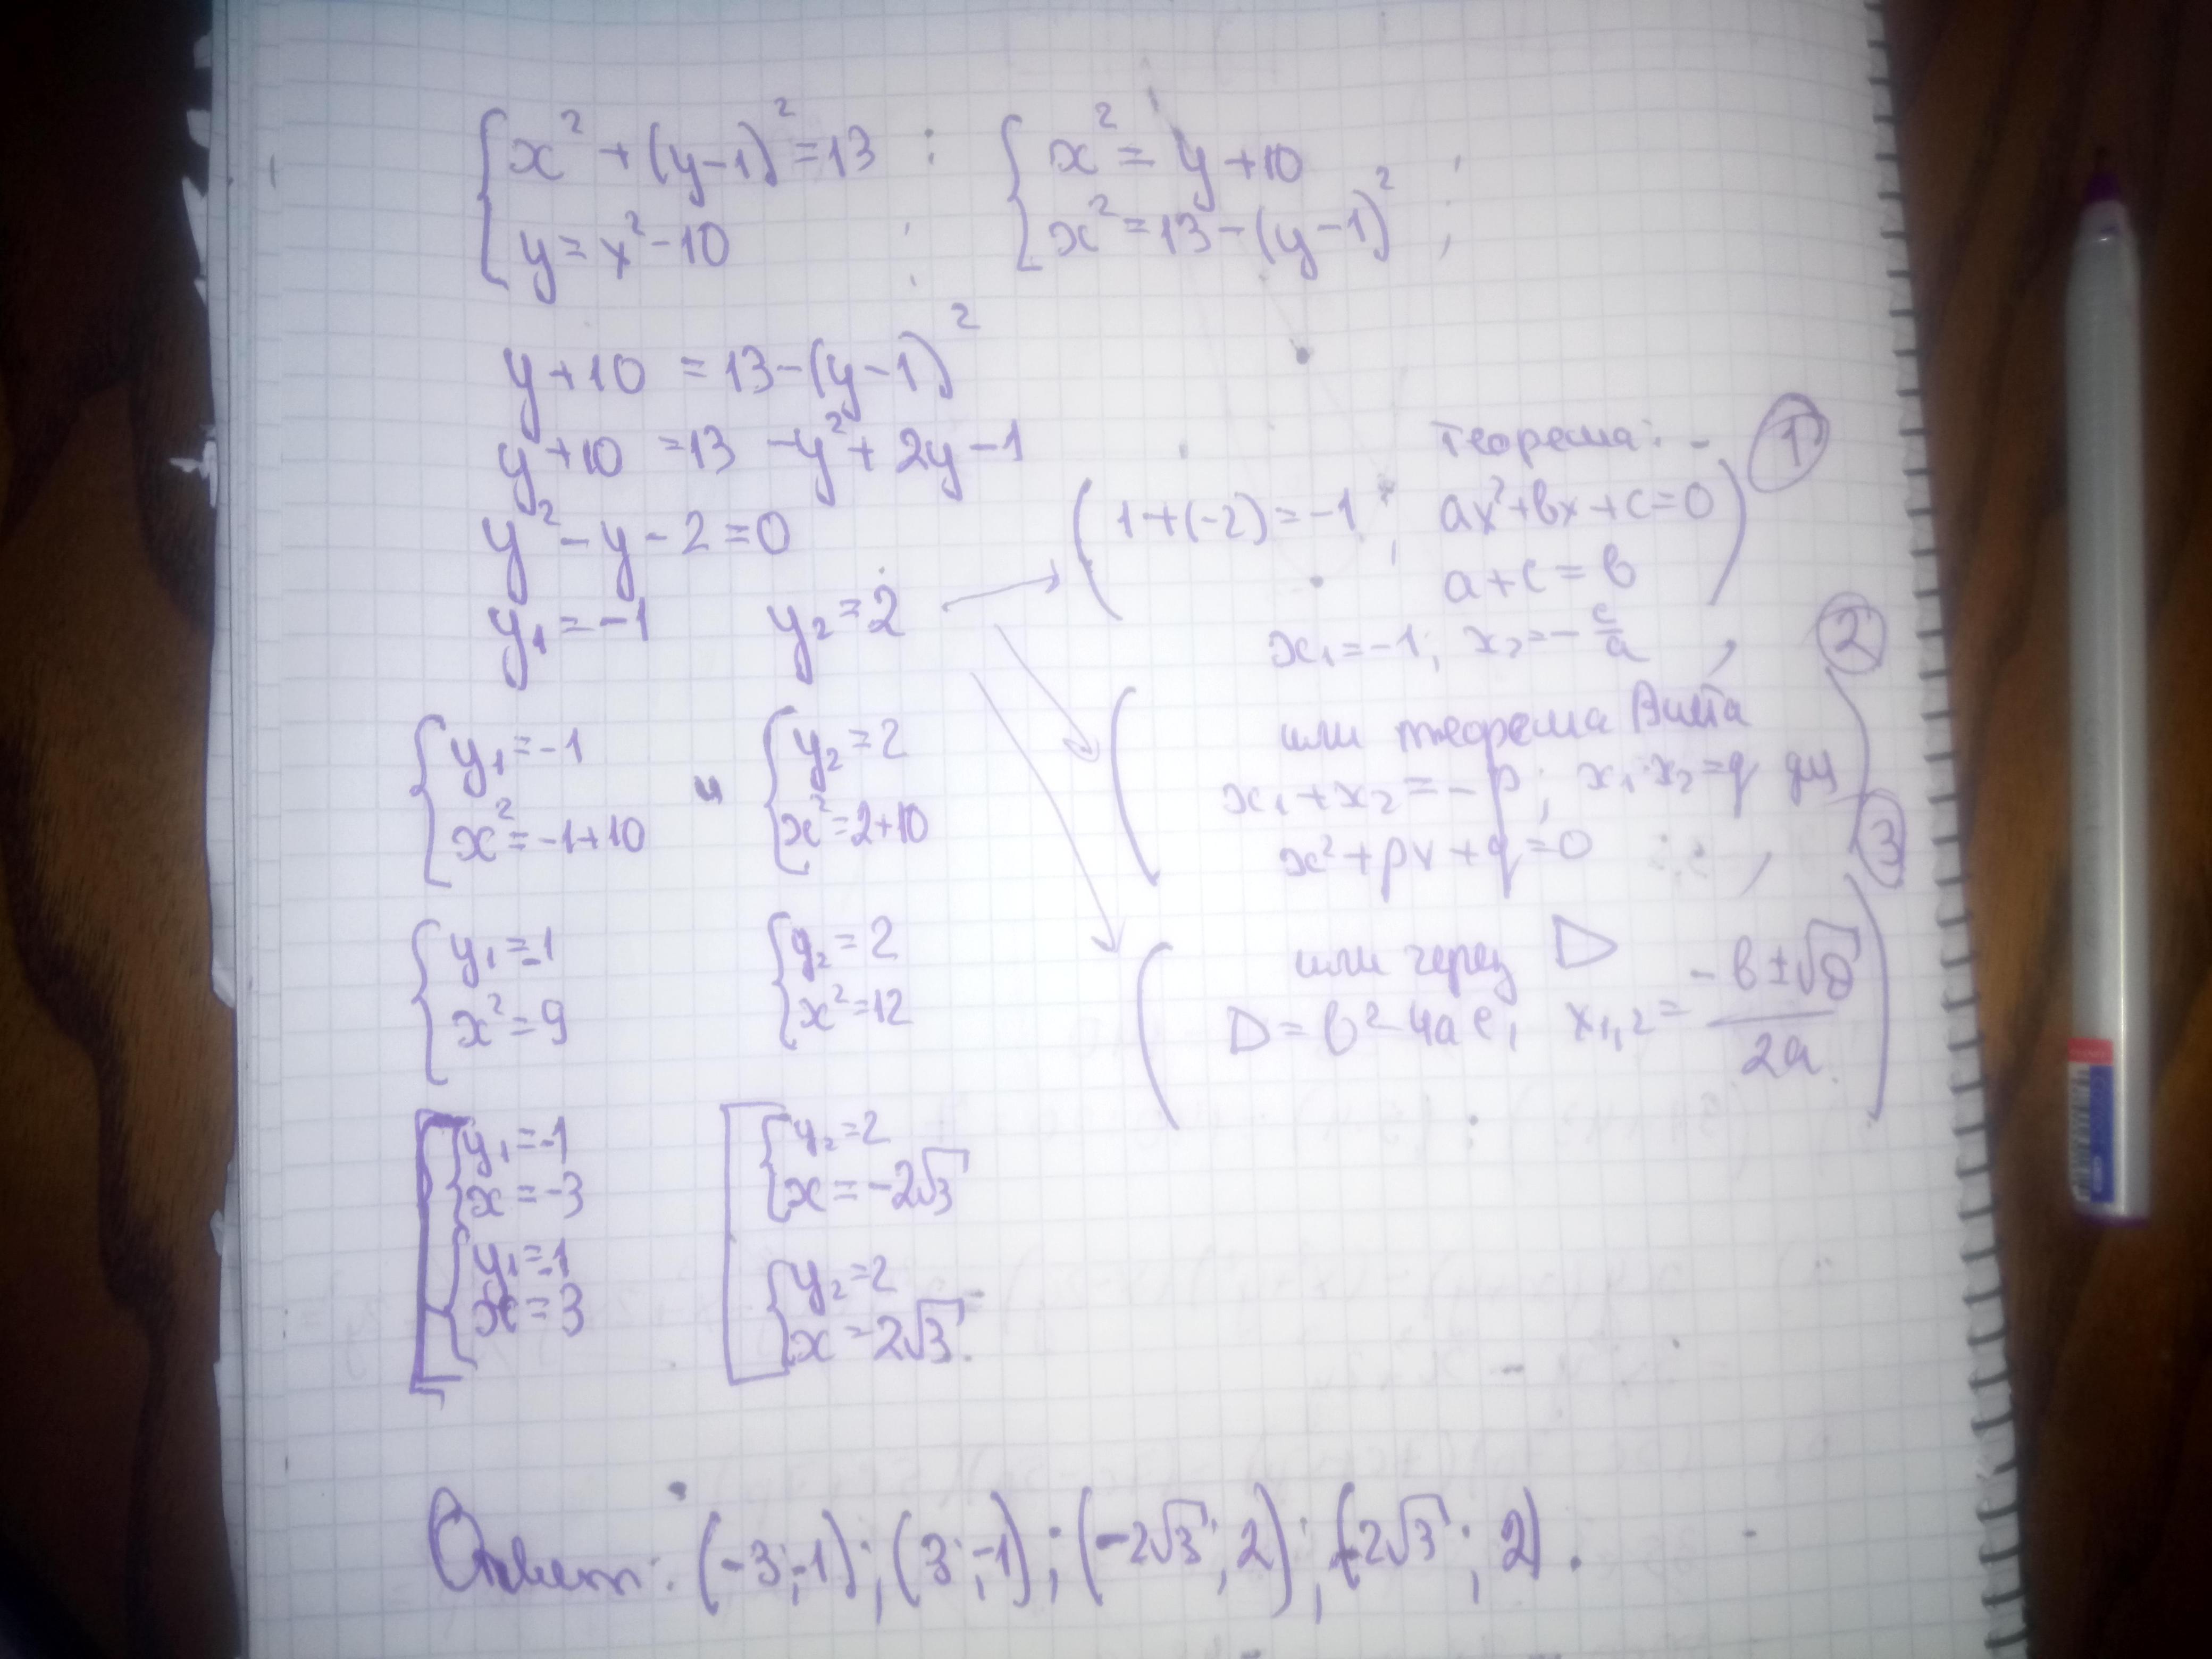 { x² + (y-1)² = 13 ; { x² = y + 10 ;
{ y = x² - 10 { x² = 13 - (y-1)² ;
y + 10 = 13 - (y-1)²
y + 10 = 13 - y² + 2y - 1
y² - y - 2 = 0
y₁ = -1 y₂ = 2
теорема: - ①
( 1 + (-2) = -1 ; ax² + bx + c = 0 )
a + c = b
x₁ = -1; x₂ = -c/a ,
②
( или теорема Виета
x₁ + x₂ = -p; x₁·x₂ = q для
x² + px + q = 0 , )
③
( или через D
D = b² - 4ac, x₁,₂ = (-b ± √D)/2a )
{ y₁ = -1 и { y₂ = 2
{ x² = -1 + 10 { x² = 2 + 10
{ y₁ = -1 { y₂ = 2
{ x² = 9 { x² = 12
[ { y₁ = -1 [ { y₂ = 2
{ x = -3 { x = -2√3
{ y₁ = -1 { y₂ = 2
{ x = 3 { x = 2√3.
Ответ: (-3;-1); (3;-1); (-2√3; 2); (2√3; 2).